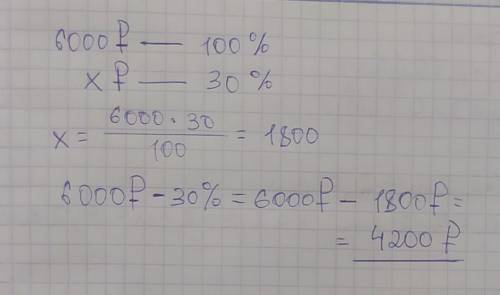 6000₽ — 100%
x ₽ — 30%
x = 6000 · 30 / 100 = 1800
6000₽ - 30% = 6000₽ - 1800₽ =
= 4200 ₽